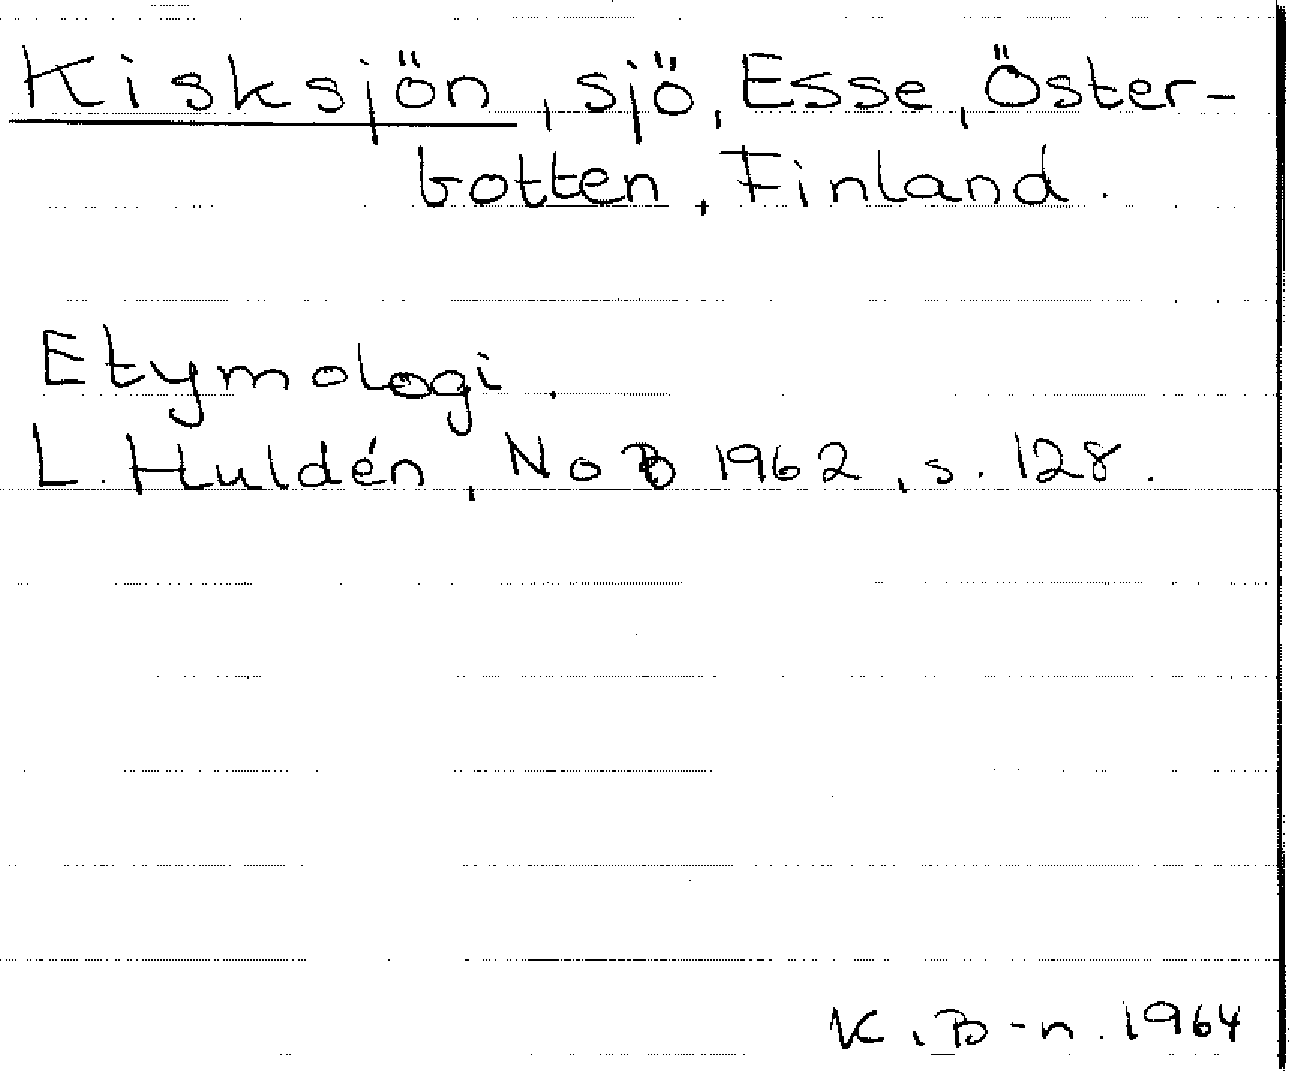 Kisksjön, sjö, Esse, Öster-
botten, Finland.
Etymologi.
L. Huldén, NoB 1962, s. 128.
K. B-n. 1964